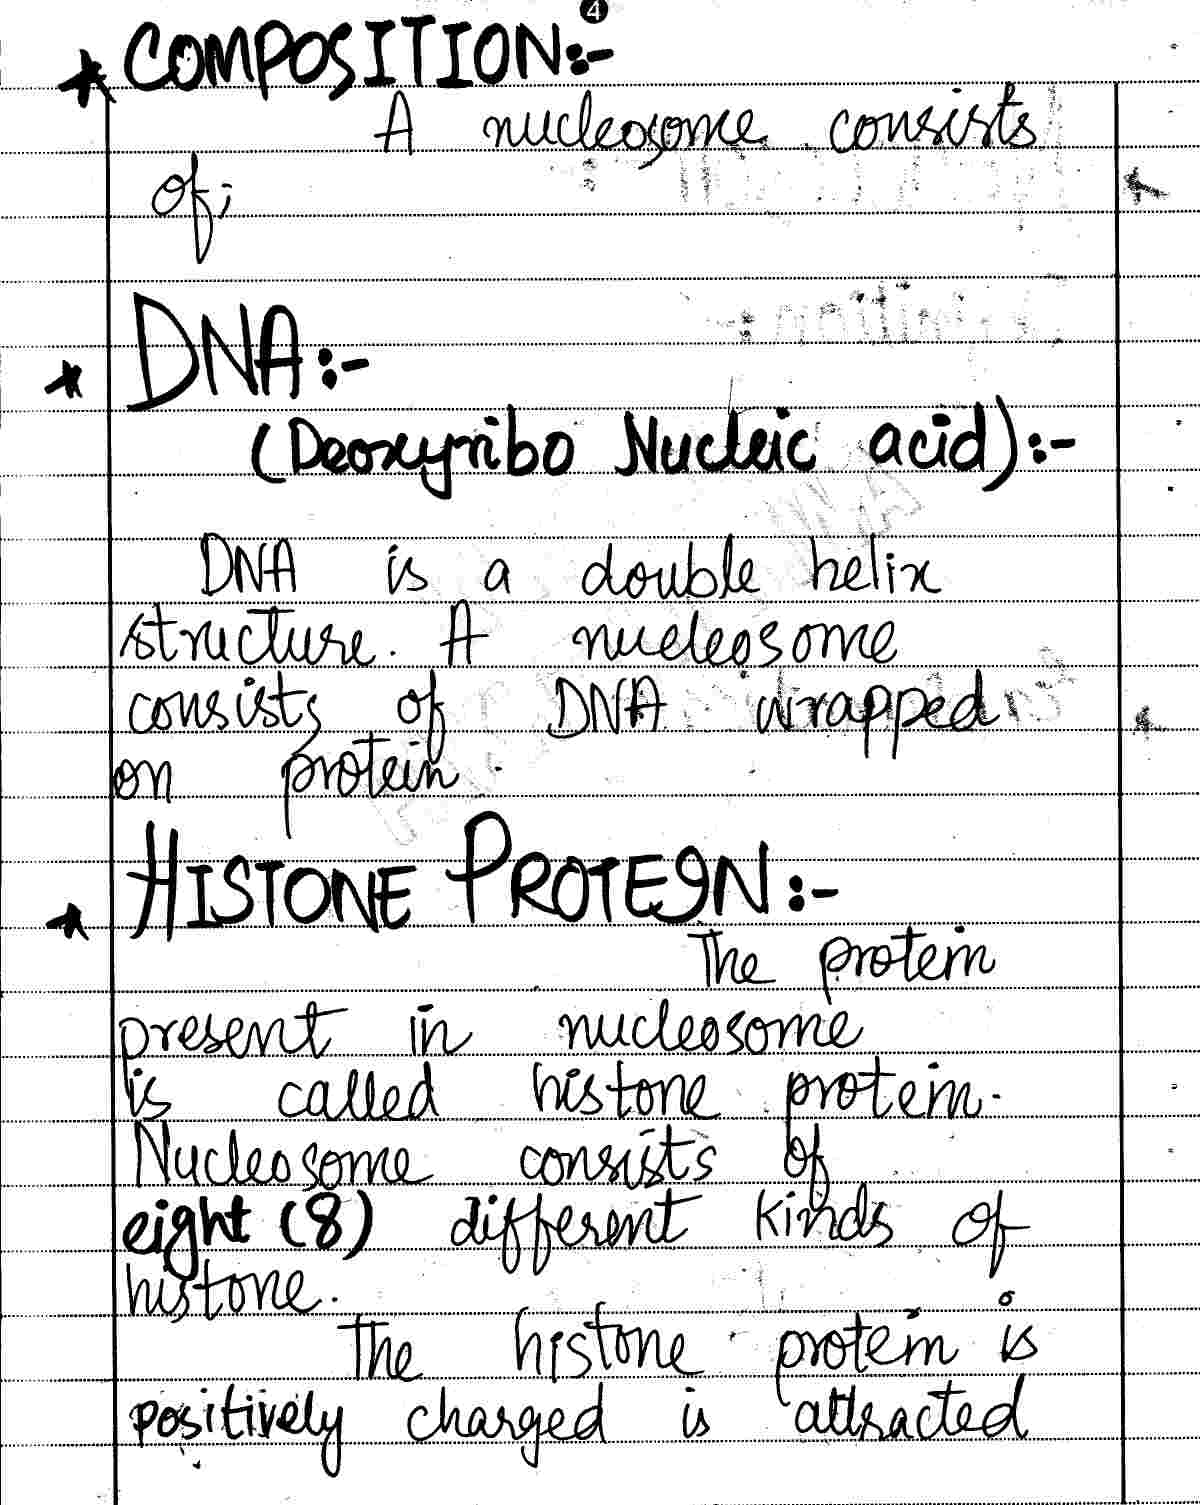 4
* COMPOSITION:-
A nucleosome consists
of;
* DNA:-
(Deoxyribo Nucleic acid):-
DNA is a double helix
structure. A nucleosome
consists of DNA wrapped
on protein.
* HISTONE PROTEIN:-
The protein
present in nucleosome
is called histone protein.
Nucleosome consists of
eight (8) different kinds of
histone.
The histone protein is
positively charged is attracted